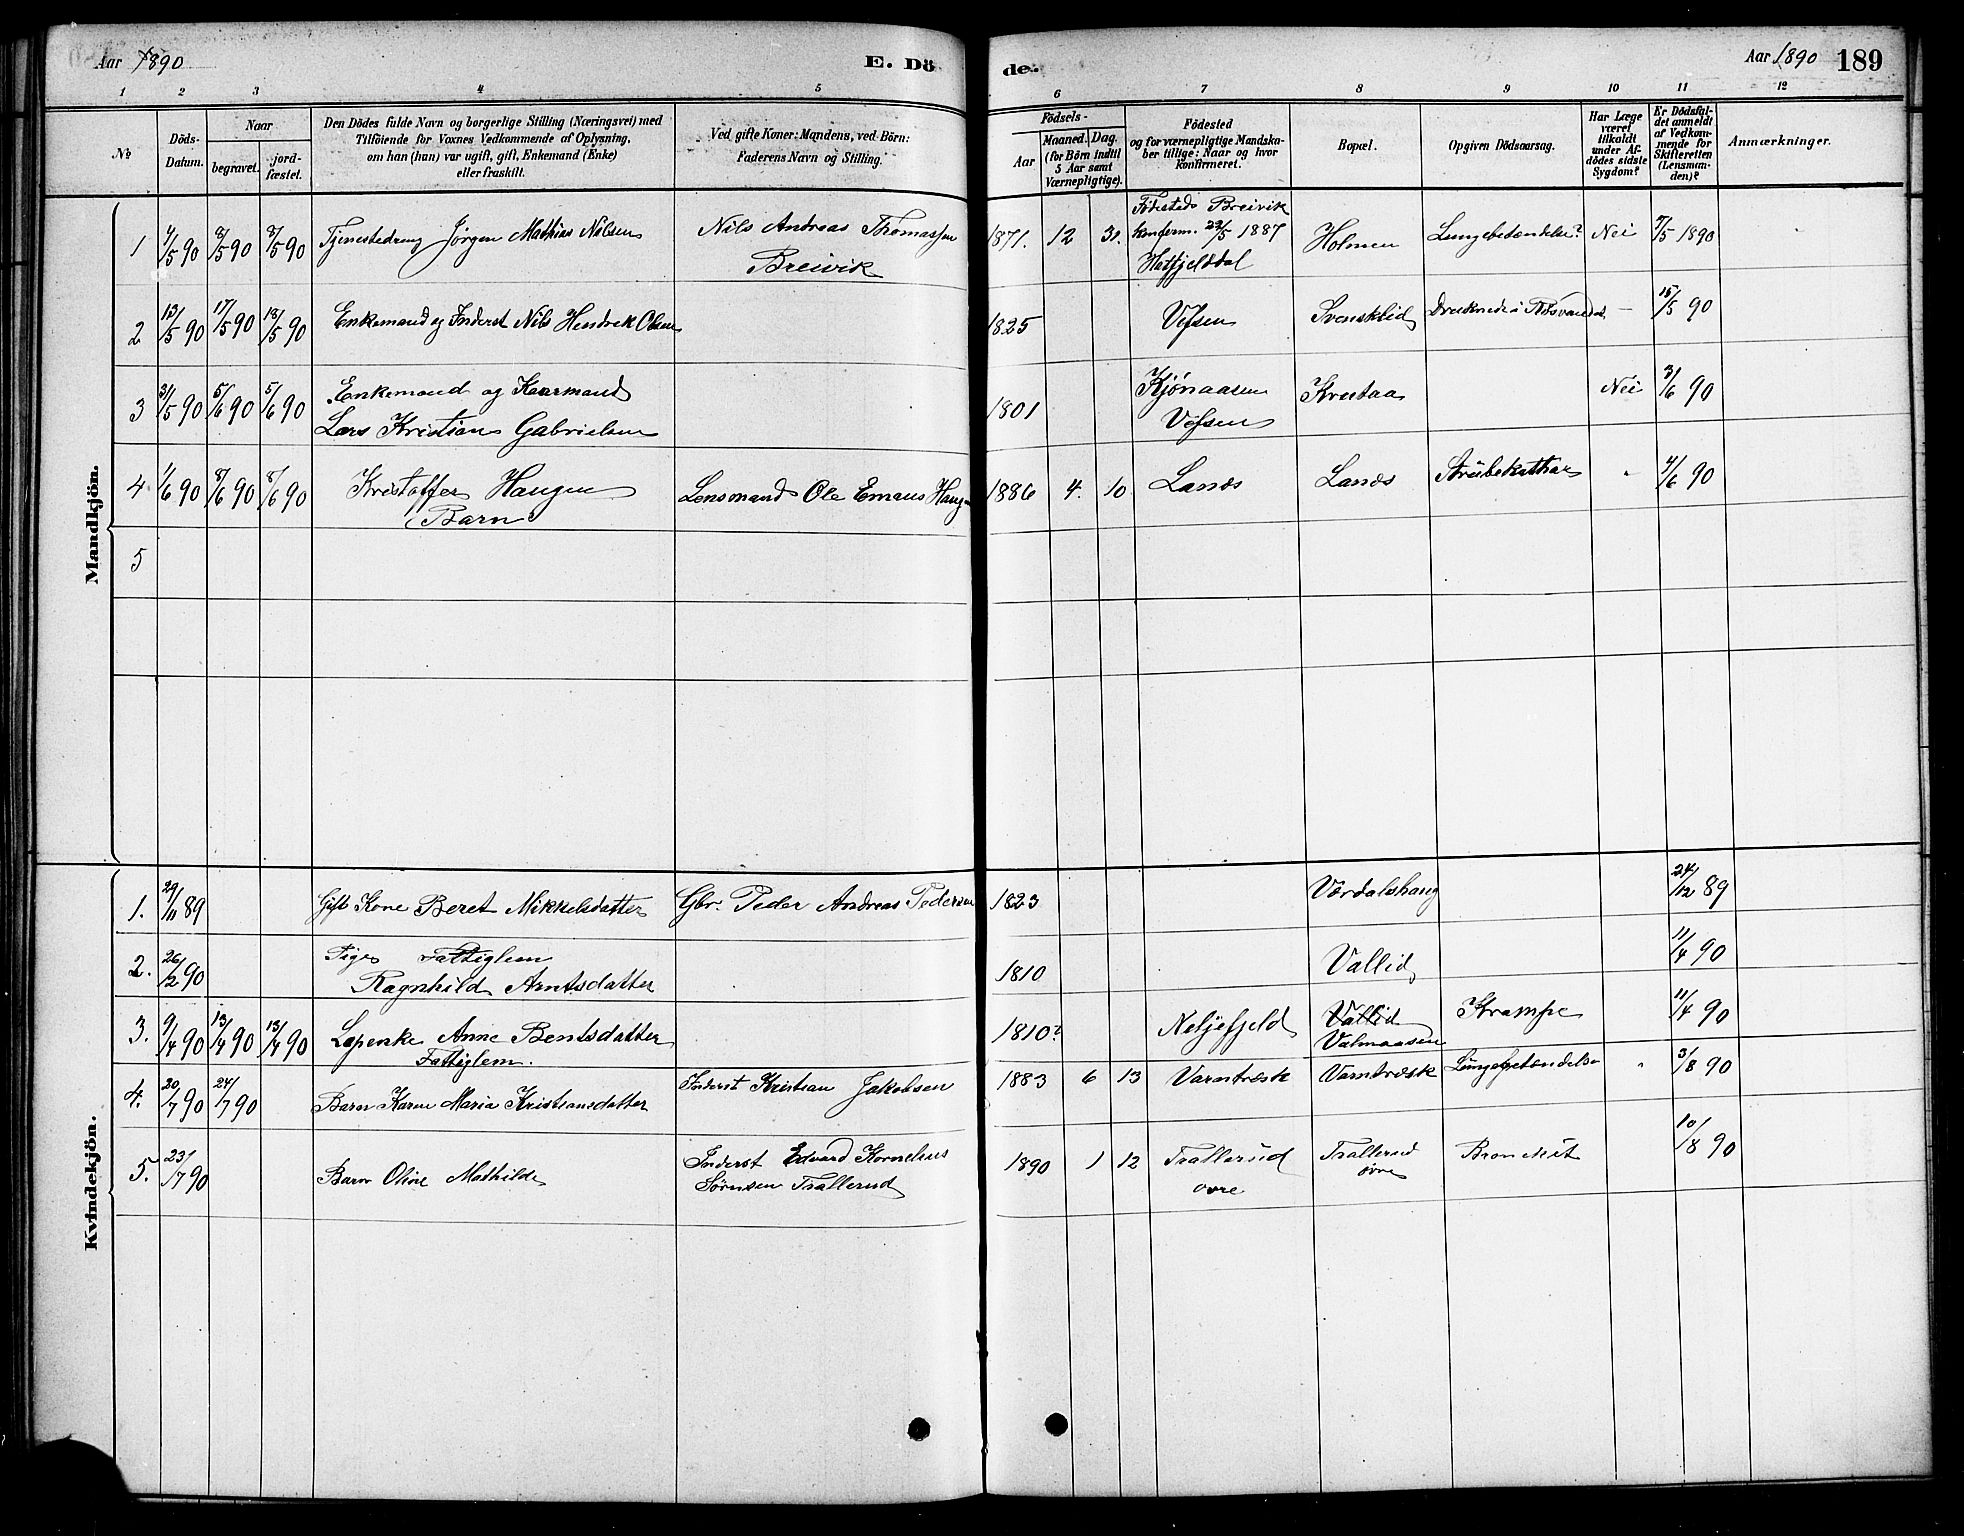 Aar 1890
E. Dö
de.
Aar 1890 189
1 2 3 4 5 6 7 8 9 10 11 12
No
Döds-
Datum.
Naar
begravet.
jord-
fæstet.
Den Dödes fulde Navn og borgerlige Stilling (Næringsvei) med
Tilföiende for Voxnes Vedkommende af Oplysning,
om han (hun) var ugift, gift, Enkemand (Enke)
eller fraskilt.
Ved gifte Koner: Mandens, ved Börn:
Faderens Navn og Stilling.
Födsels-
Aar
Maaned. Dag.
(for Börn indtil
5 Aar samt
Værnepligtige).
Födested
og for værnepligtige Mandska-
ber tillige: Naar og hvor
konfirmeret.
Bopæl.
Opgiven Dödsaarsag.
Har Læge
været
tilkaldt
under Af-
dödes sidste
Sygdom?
Er Dödsfal-
det anmeldt
af Vedkom-
mende for
Skifteretten
(Lensman-
den)?
Anmærkninger.
Mandkjön.
1 4/5 90 8/5 90 8/5 90 Tjenestedreng Jörgen Mathias Nilsen Nils Andreas Thomassen
Breivik
1871. 12 31. Födested Breivik
konferm. 29/5 1887
Hatfjelddal
Holmen Lungebetændelse? Nei 7/5 1890
2 13/5 90 17/5 90 18/5 90 Enkemand og Inderst Nils Hendrik Olsen 1825 Vefsen Svensklid Druknede i Rösvandet — 15/5 90
3 31/5 90 5/6 90 5/6 90 Enkemand og Kaarmand
Lars Kristian Gabrielsen
1801 Kjönaasen
Vefsen
Krutaa Nei 3/6 90
4 1/6 90 8/6 90 8/6 90 Kristoffer Haugen
Barn
Lensmand Ole Emaus Haugen 1886 4. 10 Lanæs Lanæs Strubekathar " 4/6 90
5
Kvindekjön.
1. 29/11 89 Gift Kone Beret Mikkelsdatter Gbr. Peder Andreas Pedersen 1823 Vördalshaug 24/12 89
2. 26/2 90 Pige Fattiglem
Ragnhild Arntsdatter
1810 Vallid 11/4 90
3. 9/4 90 13/4 90 13/4 90 Lapenke Anne Bentsdatter
Fattiglem.
1810? Neljefjeld Vallid
Valmaasen
Krampe 11/4 90
4. 20/7 90 24/7 90 Barn Karen Maria Kristiansdatter Inderst Kristian Jakobsen 1883 6 13 Varntræsk Varntræsk Lungebetændelse " 3/8 90
5. 23/7 90 Barn Oline Mathilde Inderst Edvard Kornelius
Sörnsen Trallerud
1890 1 12 Trallerud
övre
Trallerud
övre
Bronkit 10/8 90